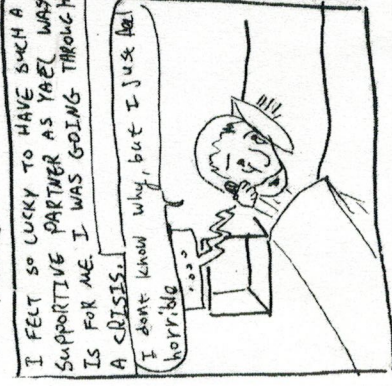 I FELT SO LUCKY TO HAVE SUCH A
SUPPORTIVE PARTNER AS YAEL WAS
IS FOR ME. I WAS GOING THROUGH
A CRISIS.
I dont know why, but I just feel
horrible